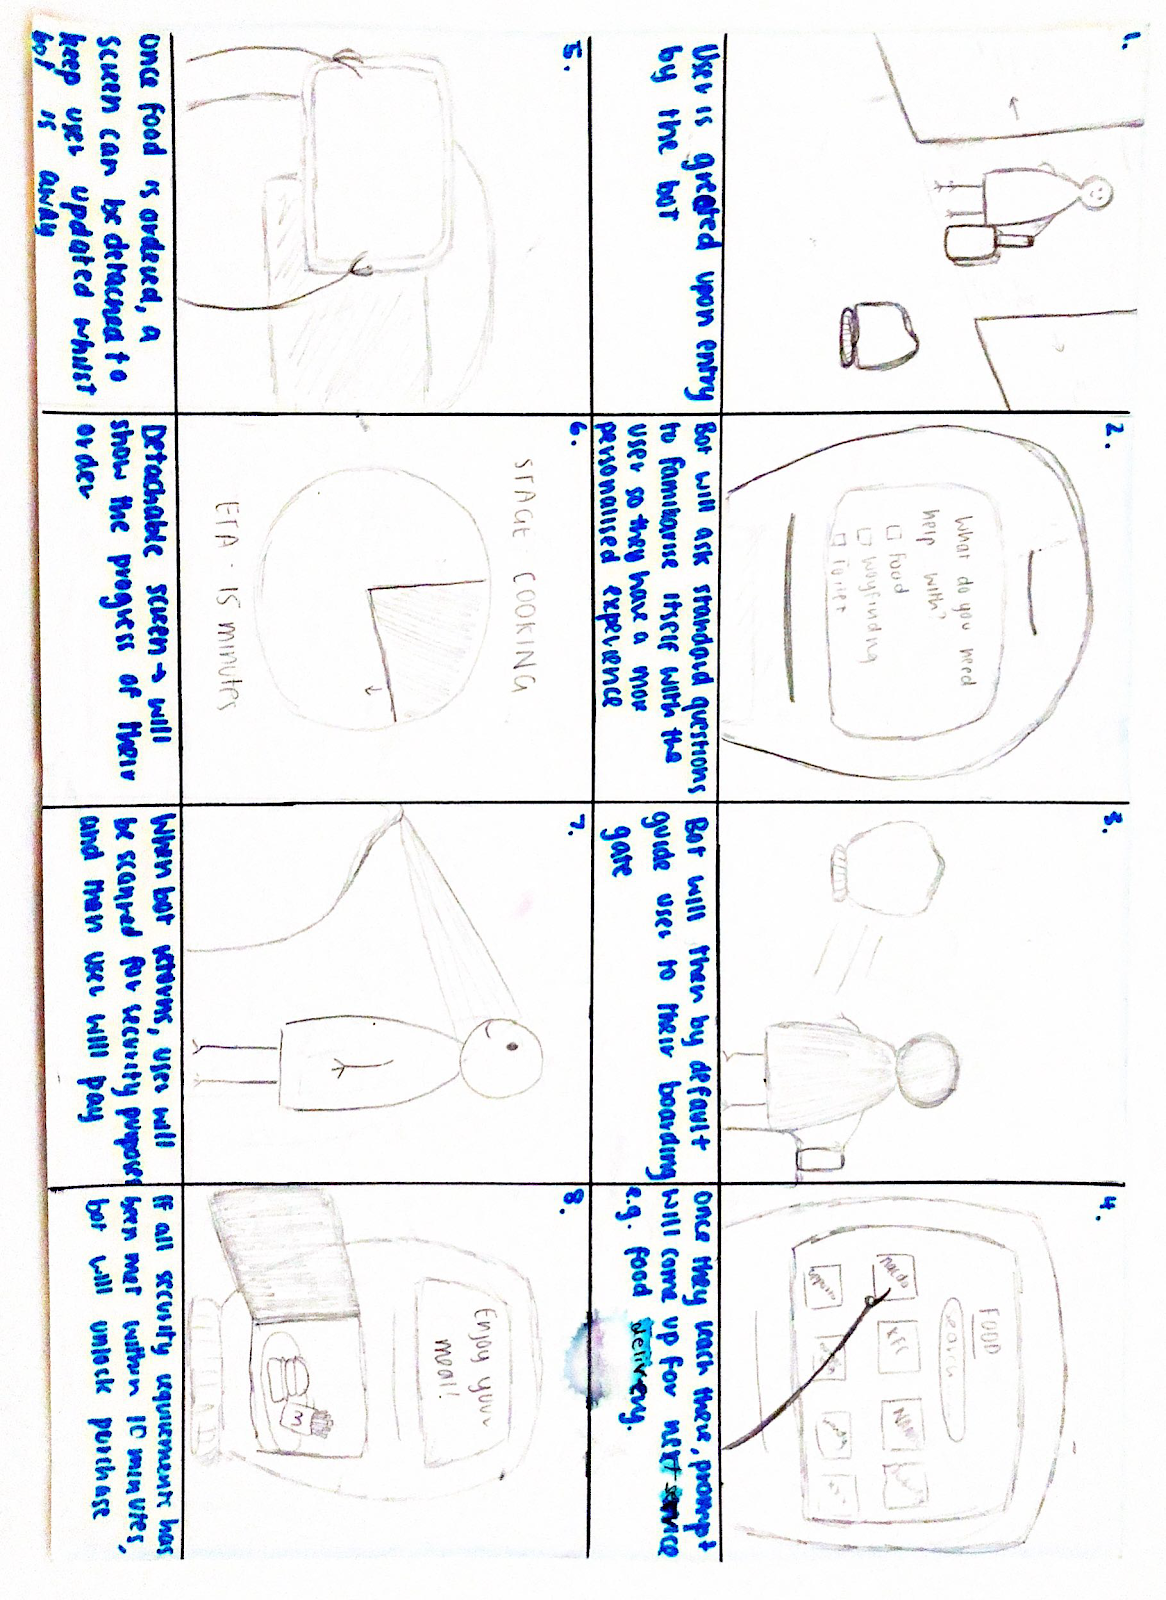 1.
User is greeted upon entry
by the bot
2.
What do you need
help with?
Food
Wayfinding
Toilet
Bot will ask standard questions
to familiarise itself with the
user so they have a mor
personalised experience
3.
Bot will then by default
guide user to their boarding
gate
4.
FOOD
search
KFC
once they reach there, prompt
will come up for next service
e.g. food delivery.
5.
Once food is ordered, a
screen can be detached to
keep user updated whilst
bot is away
6.
STAGE COOKING
ETA: 15 minutes
Detachable screen → will
show the progress of their
order
7.
When bot returns, user will
be scanned for security purposes
and then user will pay
8.
Enjoy your
meal!
M
If all security requirements has
been met within 10 minutes,
bot will unlock purchase